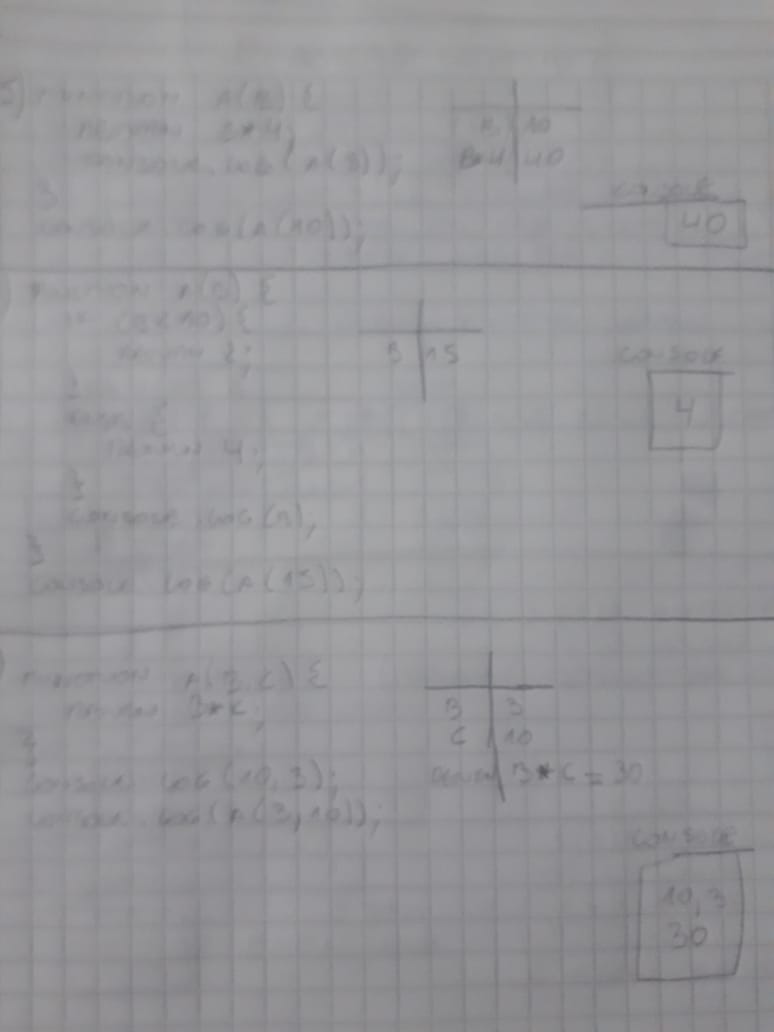 5) function A(B) {
return B*4;
console.log(A(B));
}
console.log(A(10));
B 10
B*4 40
console
40
function A(B) {
if (B<10) {
return 2;
}
else {
return 4;
}
console.log(B);
}
console.log(A(15));
B 15
console
4
function A(B,C) {
return B*C;
}
console.log(10,3);
console.log(A(3,10));
B 3
C 10
return B*C=30
console
10,3
30